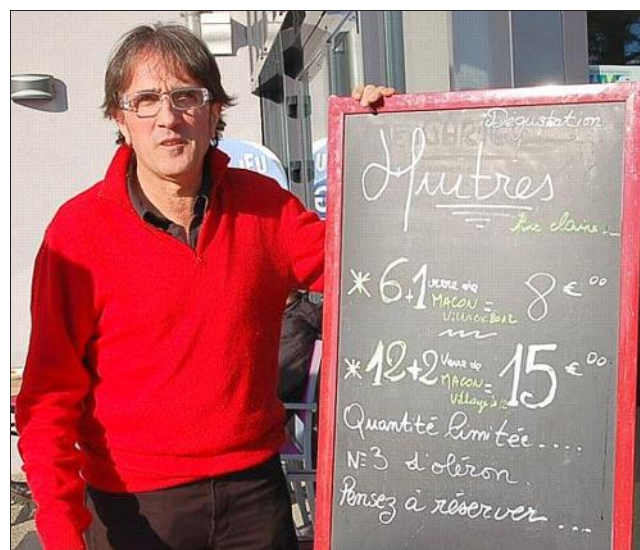 Dégustation
Huitres
fine claire
* 6+1 verre de MACON = 8 € 00
* 12+2 Verre de MACON = 15 € 00
Village
Quantité limitée....
N=3 d'oléron.
Pensez à réserver...